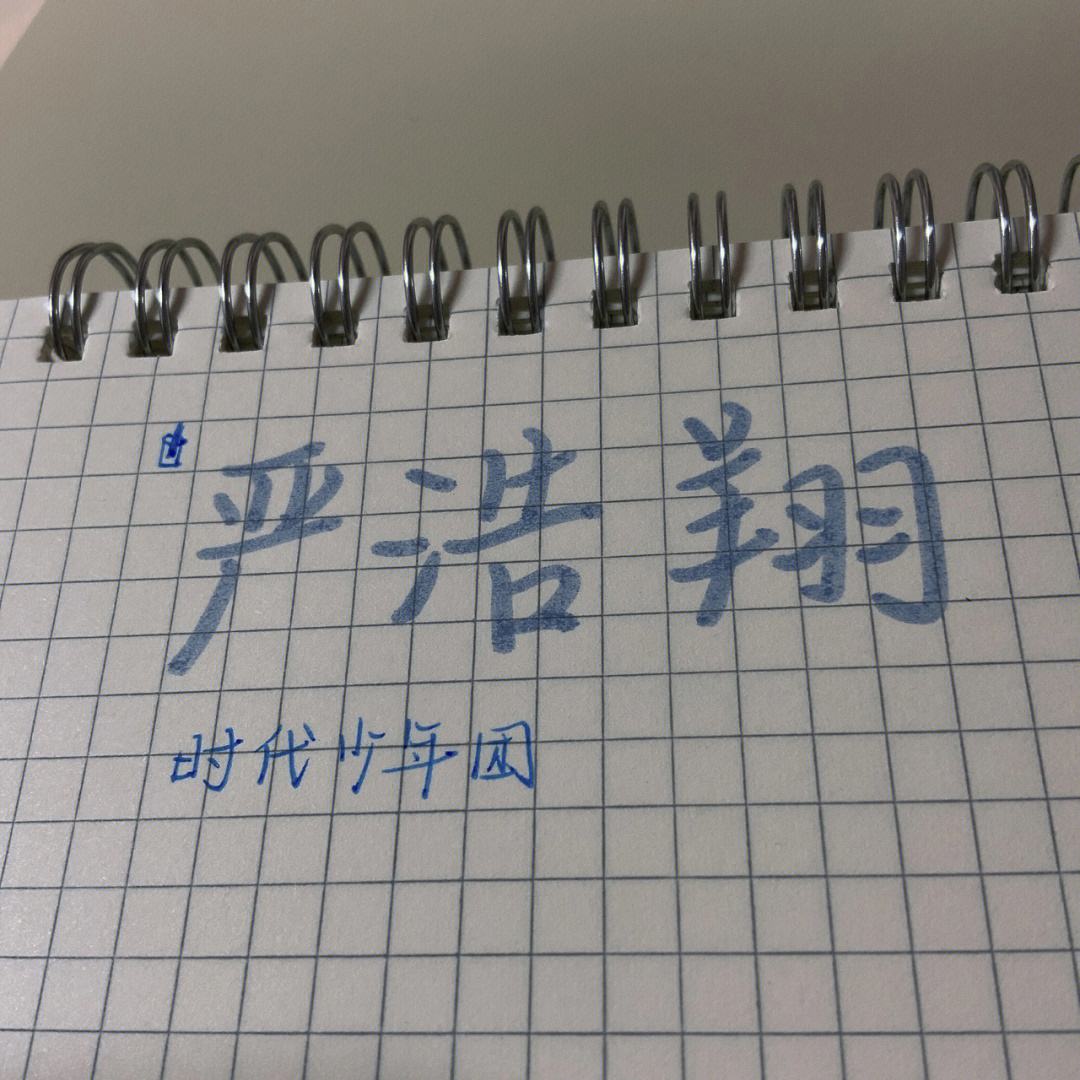 严浩翔
时代少年团